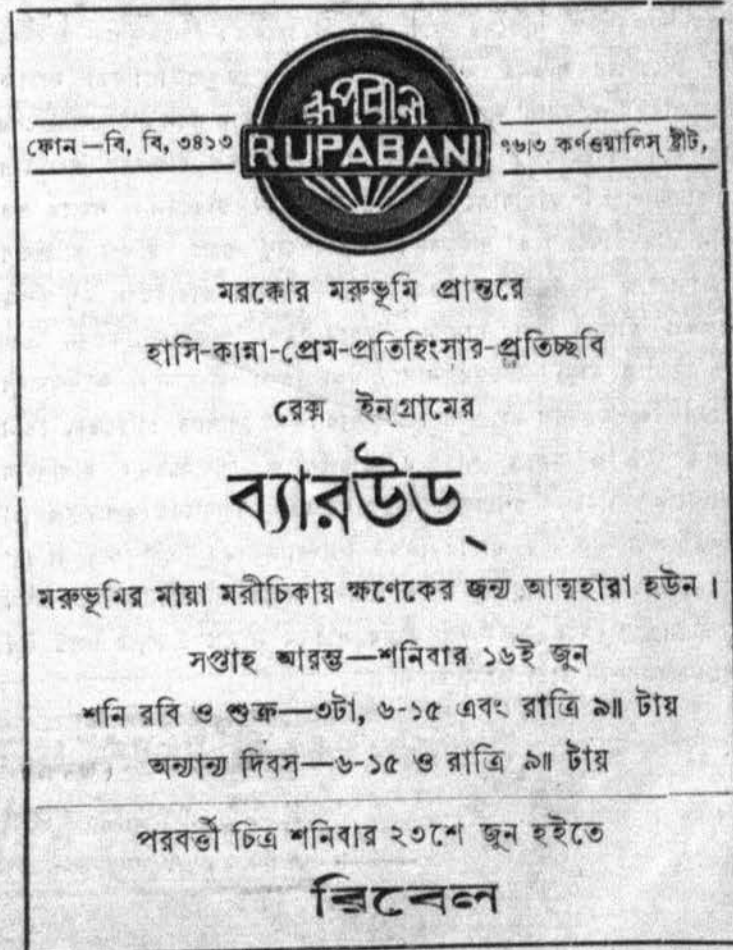 রূপবাণী
ফোন—বি, বি, ৩৪১৩
RUPABANI
৭৬৷৩ কর্ণওয়ালিস্ ষ্ট্রীট,
মরক্কোর মরুভূমি প্রান্তরে
হাসি-কান্না-প্রেম-প্রতিহিংসার-প্রতিচ্ছবি
রেক্স ইনগ্রামের
ব্যারউড্
মরুভূমির মায়া মরীচিকায় ক্ষণেকের জন্য আত্মহারা হউন।
সপ্তাহ আরম্ভ—শনিবার ১৬ই জুন
শনি রবি ও শুক্র—৩টা, ৬-১৫ এবং রাত্রি ৯॥ টায়
অন্যান্য দিবস—৬-১৫ ও রাত্রি ৯॥ টায়
পরবর্ত্তী চিত্র শনিবার ২৩শে জুন হইতে
রিবেল